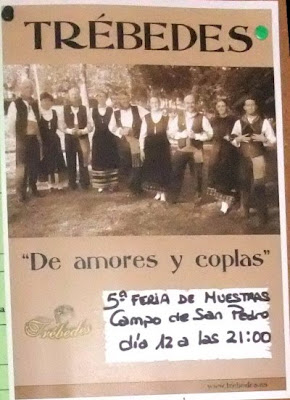 TRÉBEDES
"De amores y coplas"
Trébedes
5ª FERIA DE MUESTRAS
Campo de San Pedro
día 12 a las 21:00
www.trebedes.es